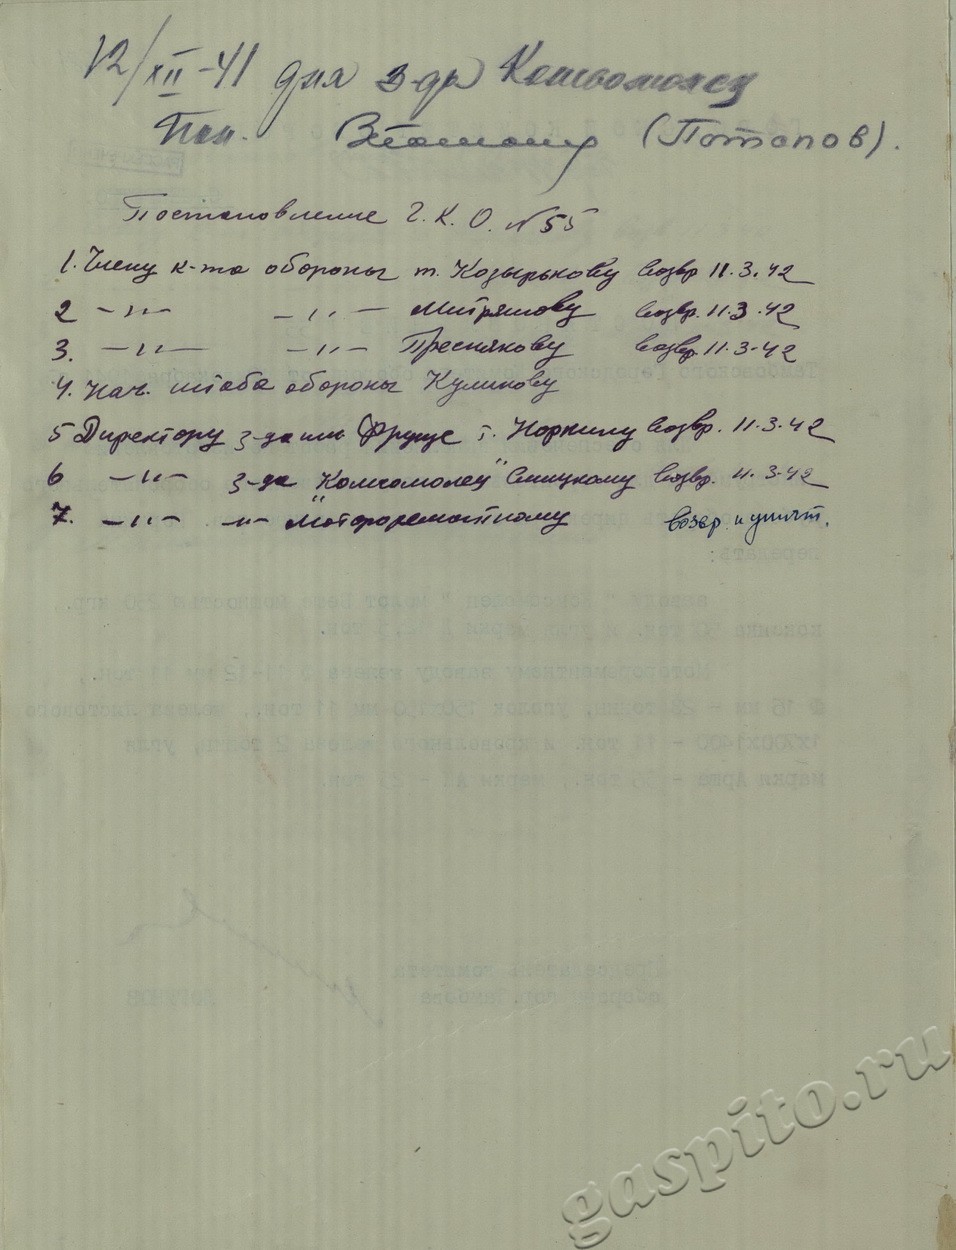 12/XII-41 для з-да Комсомолец
Пол. (Потапов).
Постановление Г.К.О. №55
1. Члену к-та обороны т. Козырькову возвр 11.3.42
2 -"- -"- Митряшову возвр. 11.3.42
3. -"- -"- Преснякову возвр. 11.3-42
4. Нач. штаба обороны Куликову
5 Директору з-да им Фрунзе т. Норкину возвр. 11-3-42
6 -"- з-да "Комсомолец" возвр. 11.3-42
7. -"- -"- Мотороремонтному возвр. и уничт.
gaspito.ru